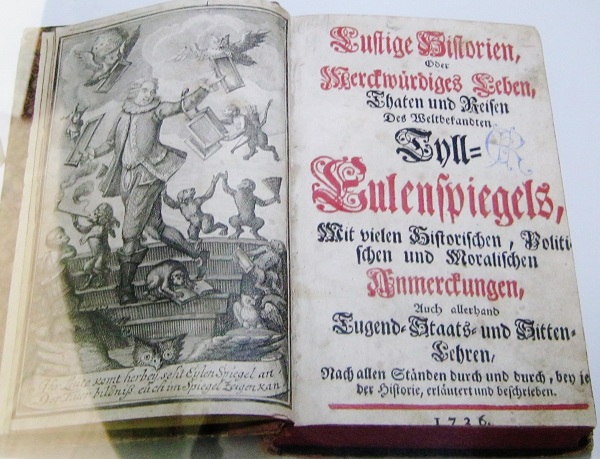 Ihr Leute komt herbey, seht Eylen Spiegel an
Der Euer bildniß euch im Spiegel Zeigen kan
Lustige Historien,
Oder
Merckwürdiges Leben,
Thaten und Reisen
Des Weltbekandten
Tyll-
Eulenspiegels,
Mit vielen Historischen, Politi
schen und Moralischen
Anmerckungen,
Auch allerhand
Tugend-Staats- und Sitten-
Lehren,
Nach allen Ständen durch und durch, bey je
der Historie, erläutert und beschrieben.
1736.